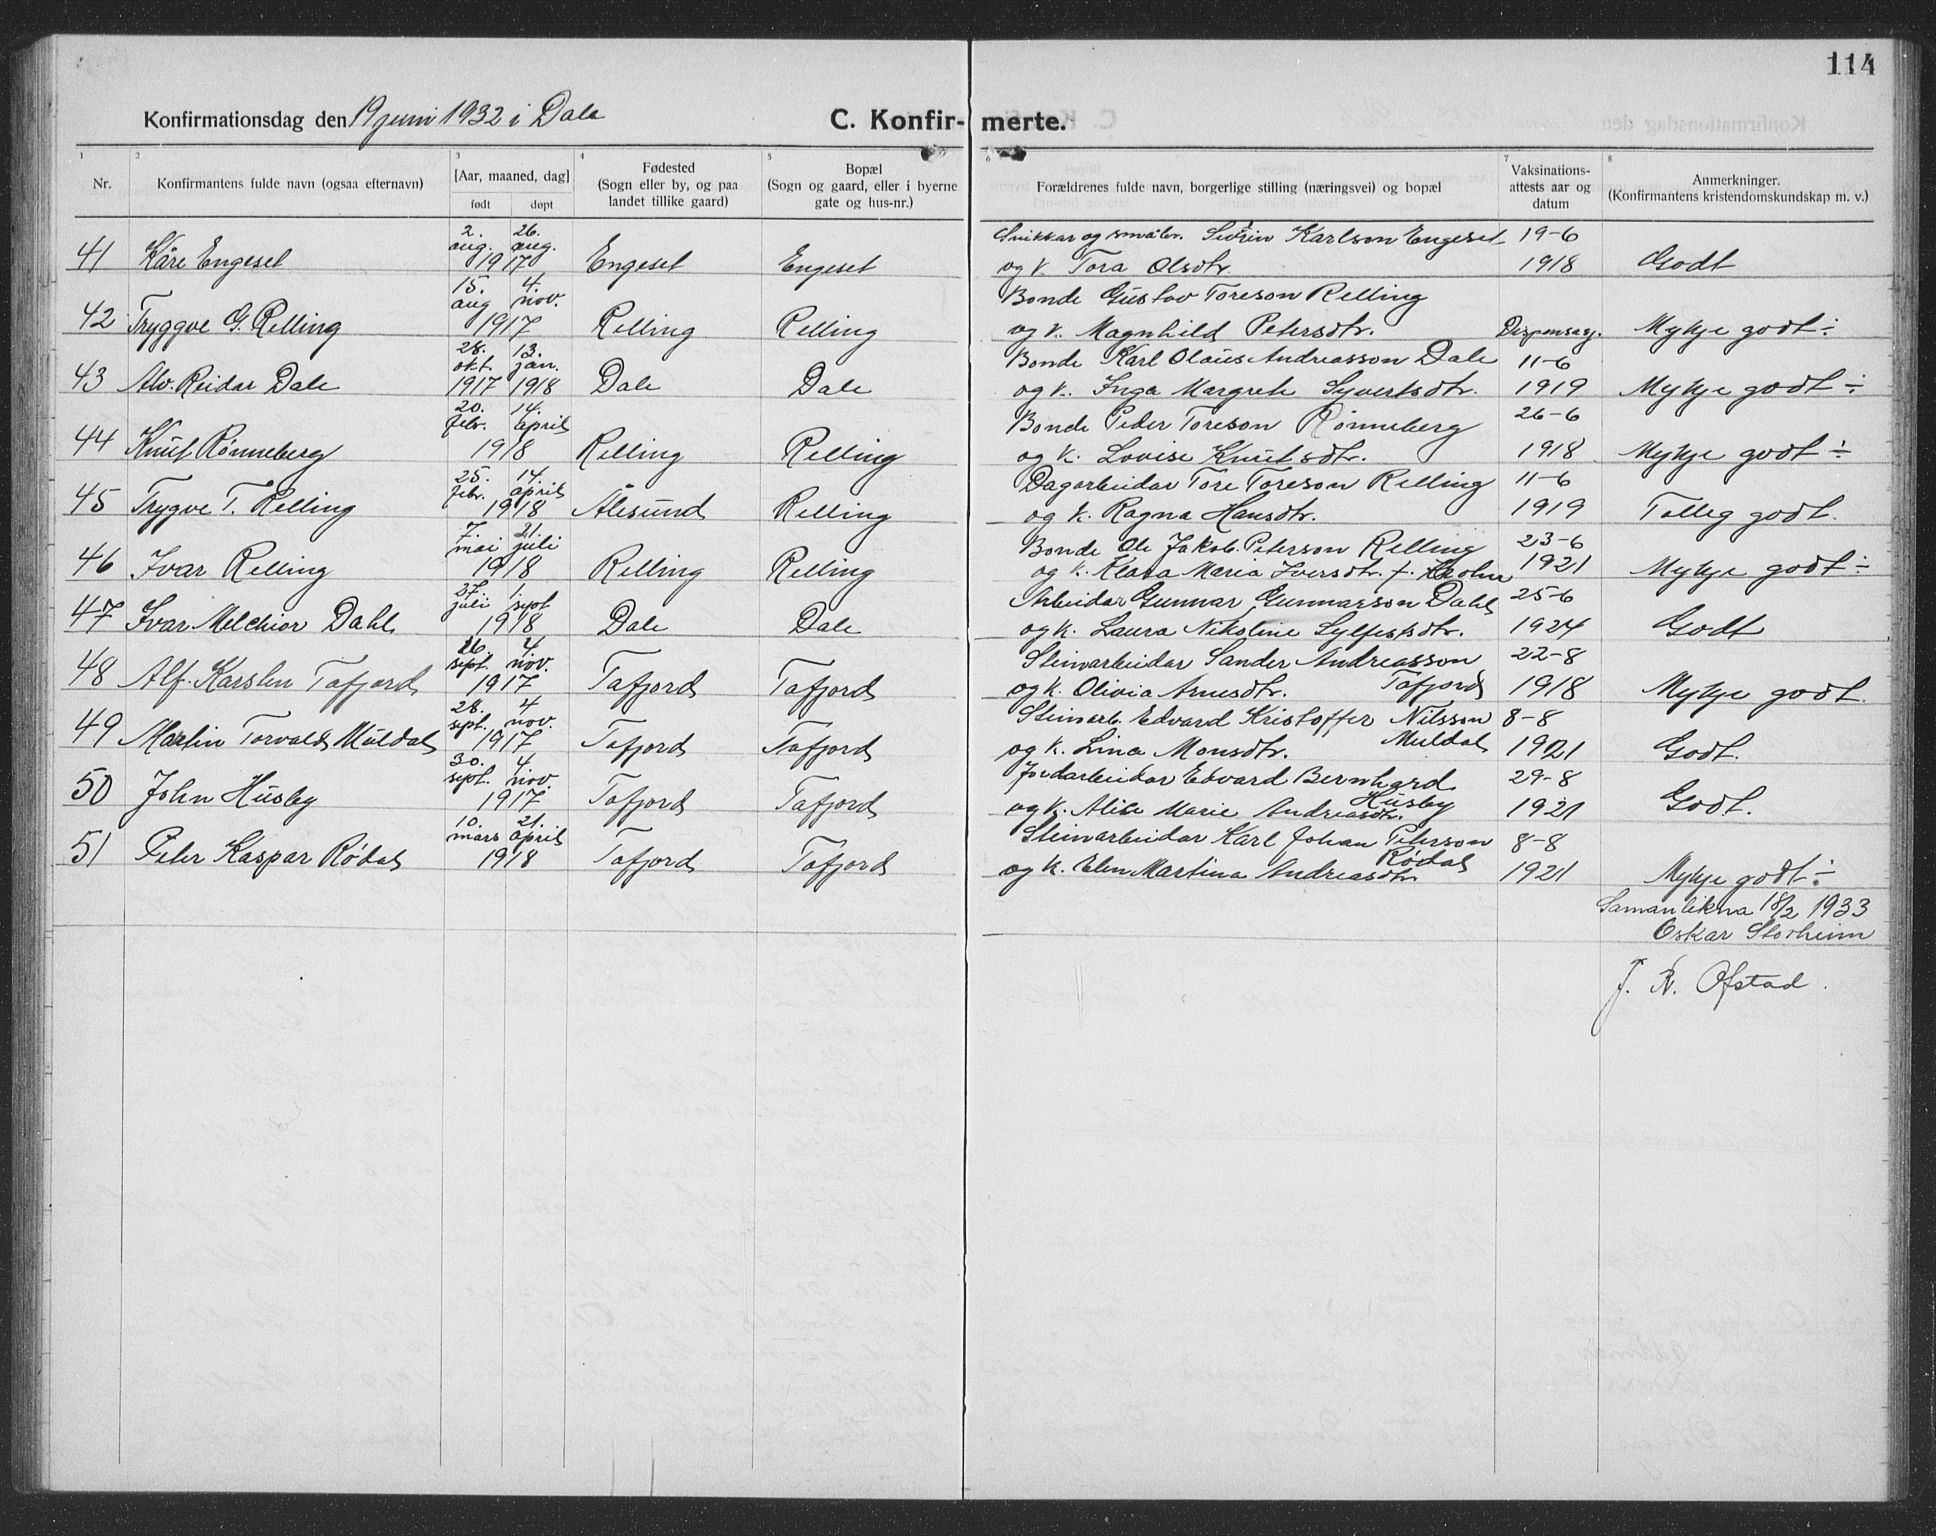 114
Konfirmationsdag den 19 juni 1932 i Dale C. Konfir- merte.
1 2 3 4 5 6 7 8
Nr. Konfirmantens fulde navn (ogsaa efternavn) [Aar, maaned, dag] født døpt Fødested (Sogn eller by, og paa landet tillike gaard) Bopæl (Sogn og gaard, eller i byerne gate og hus-nr.) Forældrenes fulde navn, borgerlige stilling (næringsvei) og bopæl Vaksinations-attests aar og datum Anmerkninger. (Konfirmantens kristendomskundskap m. v.)
2. aug. 26. aug. Snikkar og småbr. Sevrin Karlson Engeset 19-6
41 Kåre Engeset 1917 Engeset Engeset og k. Tora Olsdtr. 1918 Godt
15. aug 4. nov. Bonde Gustav Toreson Relling
42 Tryggve G. Relling 1917 Relling Relling og k. Magnhild Petersdtr. Dispensasj. Mykje godt ÷
28. okt. 13. jan. Bonde Karl Olaus Andreasson Dale 11-6
43 Alv. Reidar Dale 1917 1918 Dale Dale og k. Inga Margrete Syvertsdtr. 1919 Mykje godt ÷
20. febr. 14. april Bonde Peder Toreson Rønneberg 26-6
44 Knut Rønneberg 1918 Relling Relling og k. Lovise Knutsdtr. 1918 Mykje godt ÷
25. febr. 14. april Dagarbeidar Tore Toreson Relling 11-6
45 Trygve T. Relling 1918 Ålesund Relling og k. Ragna Hansdtr. 1919 Tolleg godt.
7. mai 21. juli Bonde Ole Jakob Peterson Relling 23-6
46 Ivar Relling 1918 Relling Relling og k. Klara Maria Iversdtr. f. 1921 Mykje godt ÷
27. juli 1. sept Arbeidar Gunnar Gunnarson Dahl 25-6
47 Ivar Melchior Dahl 1918 Dale Dale og k. Laura Nikoline Sylfestsdtr. 1924 Godt
26. sept. 4. nov. Steinarbeidar Sander Andreasson 22-8
48 Alf. Karsten Tafjord 1917 Tafjord Tafjord og k. Olivia Arnesdtr. Tafjord 1918 Mykje godt.
28. sept. 4 nov. Steinarb. Edvard Kristoffer Nilsson 8-8
49 Martin Torvald Muldal 1917 Tafjord Tafjord og k. Lina Monsdtr. Muldal 1921 Godt.
30. sept. 4. nov. Jordarbeidar Edvard Bernhard 29-8
50 John Husby 1917 Tafjord Tafjord og k. Alise Marie Andreasdtr. Husby 1921 Godt.
10. mars 21. april Steinarbeidar Karl Johan Peterson 8-8
51 Peter Kaspar Rødal 1918 Tafjord Tafjord og k. Elen Martina Andreasdtr. Rødal 1921 Mykje godt ÷
Samanlikna 18/2 1933
Oskar Storheim
J. R. Ofstad.